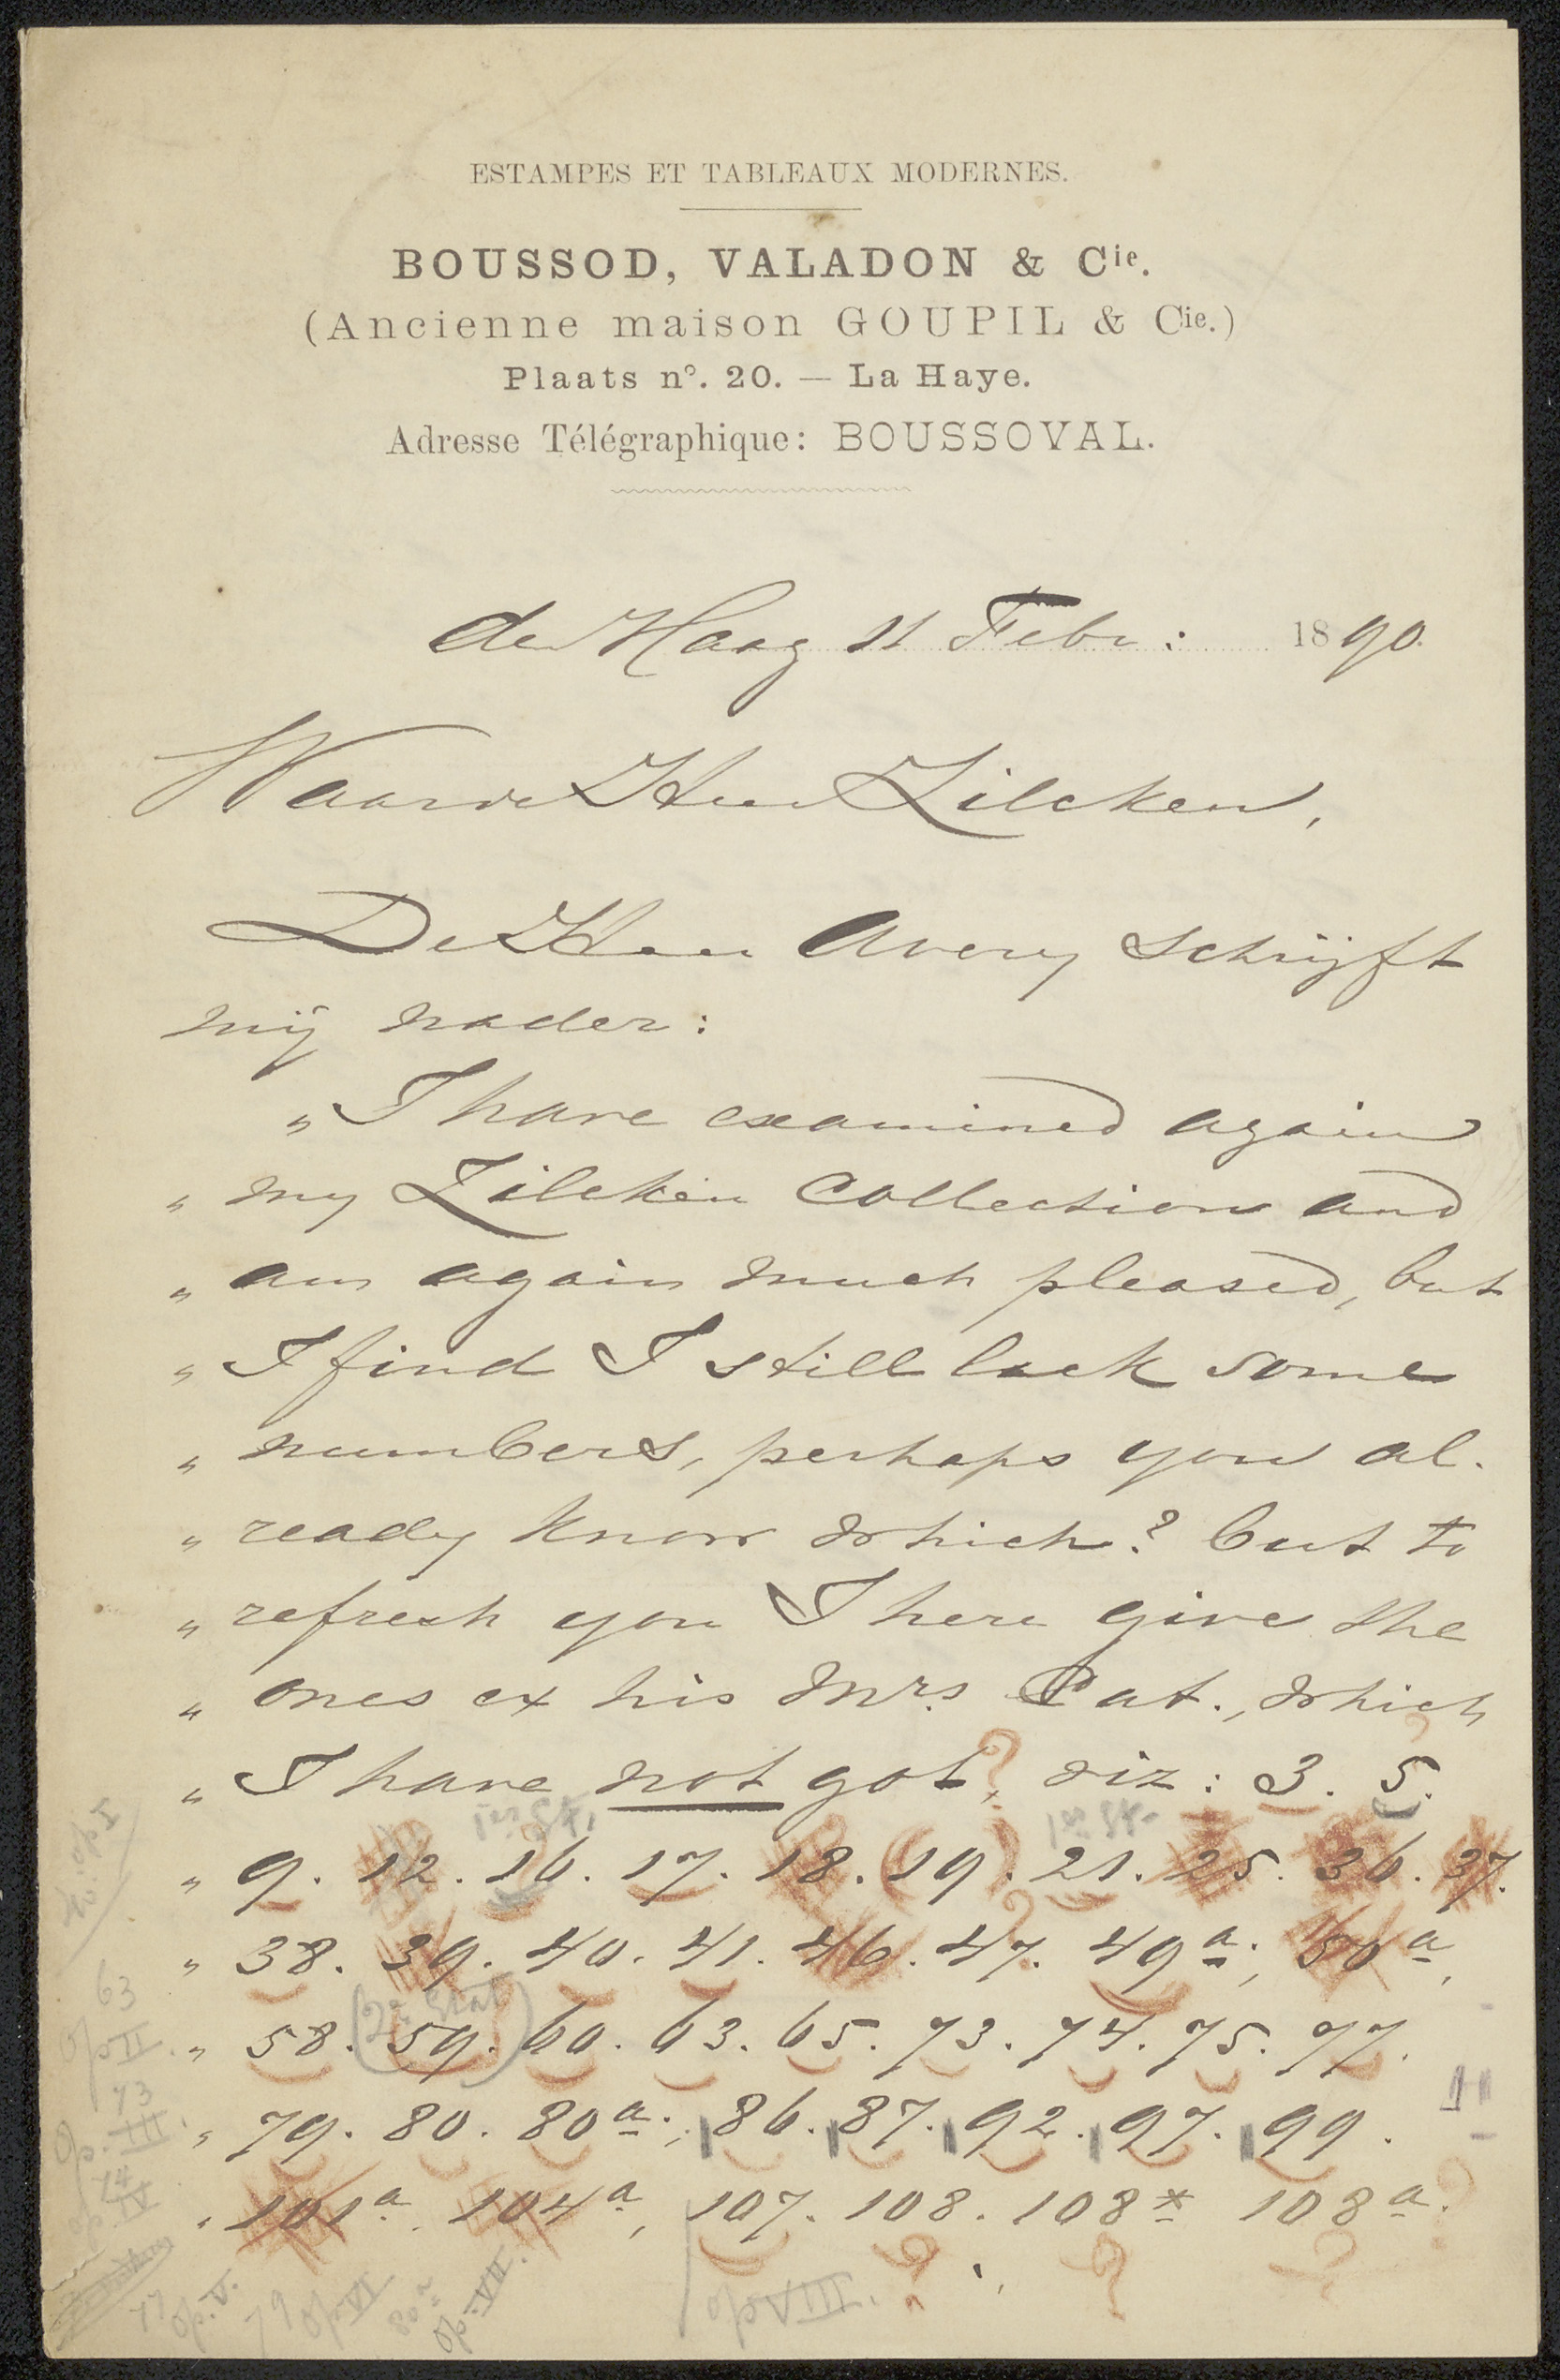 ESTAMPES ET TABLEAUX MODERNES.
BOUSSOD, VALADON & Cie.
(Ancienne maison GOUPIL & Cie.)
Plaats no. 20. — La Haye.
Adresse Télégraphique: BOUSSOVAL.
den Haag 11 Febr: 1890.
Waarde Heer Zilcken,
De Heer Avery schrijft
mij nader:
„ I have examined again
„ my Zilcken Collection and
„ am again much pleased, but
„ I find I still lack some
„ numbers, perhaps you al-
„ ready know which? but to
„ refresh you I here give the
„ ones ex his Mrs. Cat., which
„ I have not got, viz: 3. 5.
1er St. 1er St.
„ 9. 12. 16. 17. 18. (19). 21. 25. 36. 37.
„ 38. 39. 40. 41. 46. 47. 49a; 50a,
(2e Stat)
„ 58. 59. 60. 63. 65. 73. 74. 75. 77.
„ 79. 80. 80a; 86. 87. 92. 97. 99.
„ 101a. 104a, 107. 108. 108* 108a.
40. op I
63
op II.
73
op. III.
74
op. IV
77 op. V.
79 op VI
80a op. VII.
op VIII.